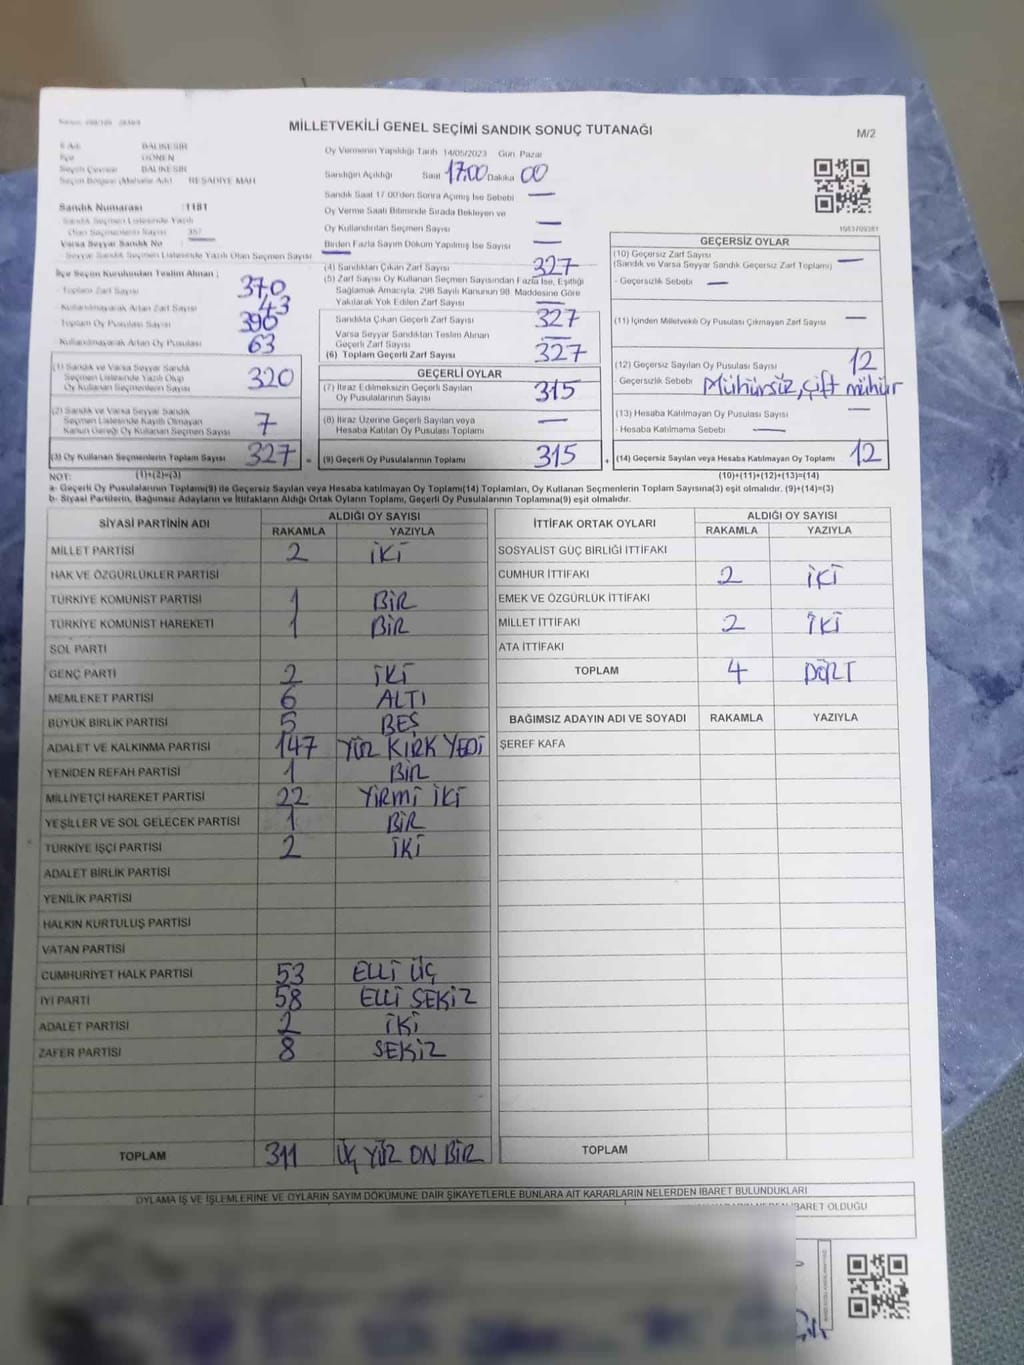 MİLLETVEKİLİ GENEL SEÇİMİ SANDIK SONUÇ TUTANAĞI
M/2
BALIKESİR
GÖNEN
BALIKESİR
REŞADİYE MAH
Oy Vermenin Yapıldığı Tarih 14/05/2023 Gün Pazar
Sandığın Açıldığı Saat 17:00 Dakika 00
Sandık Saat 17:00'den Sonra Açılmış İse Sebebi —
Oy Verme Saati Bitiminde Sırada Bekleyen ve
Oy Kullandırılan Seçmen Sayısı —
Birden Fazla Sayım Döküm Yapılmış İse Sayısı —
Sandık Numarası : 1181
Sandık Seçmen Listesinde Yazılı
Olan Seçmenlerin Sayısı
Varsa Seyyar Sandık No —
Seyyar Sandık Seçmen Listesinde Yazılı Olan Seçmen Sayısı —
İlçe Seçim Kurulundan Teslim Alınan ;
Toplam Zarf Sayısı 370
Kullanılmayarak Artan Zarf Sayısı 43
Toplam Oy Pusulası Sayısı 390
Kullanılmayarak Artan Oy Pusulası 63
(1) Sandık ve Varsa Seyyar Sandık
Seçmen Listesinde Yazılı Olup
Oy Kullanan Seçmenlerin Sayısı 320
(2) Sandık ve Varsa Seyyar Sandık
Seçmen Listesinde Kayıtlı Olmayan
Kanun Gereği Oy Kullanan Seçmen Sayısı 7
(3) Oy Kullanan Seçmenlerin Toplam Sayısı 327 =
(4) Sandıktan Çıkan Zarf Sayısı 327
(5) Zarf Sayısı Oy Kullanan Seçmen Sayısından Fazla İse, Eşitliği
Sağlamak Amacıyla, 298 Sayılı Kanunun 98. Maddesine Göre
Yakılarak Yok Edilen Zarf Sayısı —
Sandıkta Çıkan Geçerli Zarf Sayısı 327
Varsa Seyyar Sandıktan Teslim Alınan
Geçerli Zarf Sayısı —
(6) Toplam Geçerli Zarf Sayısı 327
GEÇERLİ OYLAR
(7) İtiraz Edilmeksizin Geçerli Sayılan
Oy Pusulalarının Sayısı 315
(8) İtiraz Üzerine Geçerli Sayılan veya
Hesaba Katılan Oy Pusulası Toplamı —
(9) Geçerli Oy Pusulalarının Toplamı 315 +
GEÇERSİZ OYLAR
(10) Geçersiz Zarf Sayısı
(Sandık ve Varsa Seyyar Sandık Geçersiz Zarf Toplamı) —
- Geçersizlik Sebebi —
(11) İçinden Milletvekili Oy Pusulası Çıkmayan Zarf Sayısı —
(12) Geçersiz Sayılan Oy Pusulası Sayısı 12
Geçersizlik Sebebi Mühürsüz, çift mühür
(13) Hesaba Katılmayan Oy Pusulası Sayısı —
- Hesaba Katılmama Sebebi —
(14) Geçersiz Sayılan veya Hesaba Katılmayan Oy Toplamı 12
NOT: (1)+(2)=(3) (10)+(11)+(12)+(13)=(14)
a- Geçerli Oy Pusulalarının Toplamı(9) ile Geçersiz Sayılan veya Hesaba katılmayan Oy Toplamı(14) Toplamları, Oy Kullanan Seçmenlerin Toplam Sayısına(3) eşit olmalıdır. (9)+(14)=(3)
b- Siyasi Partilerin, Bağımsız Adayların ve İttifakların Aldığı Ortak Oyların Toplamı, Geçerli Oy Pusulalarının Toplamına(9) eşit olmalıdır.
SİYASİ PARTİNİN ADI ALDIĞI OY SAYISI
RAKAMLA YAZIYLA
MİLLET PARTİSİ 2 İKİ
HAK VE ÖZGÜRLÜKLER PARTİSİ
TÜRKİYE KOMÜNİST PARTİSİ 1 BİR
TÜRKİYE KOMÜNİST HAREKETİ 1 BİR
SOL PARTİ
GENÇ PARTİ 2 İKİ
MEMLEKET PARTİSİ 6 ALTI
BÜYÜK BİRLİK PARTİSİ 5 BEŞ
ADALET VE KALKINMA PARTİSİ 147 YÜZ KIRK YEDİ
YENİDEN REFAH PARTİSİ 1 BİR
MİLLİYETÇİ HAREKET PARTİSİ 22 YİRMİ İKİ
YEŞİLLER VE SOL GELECEK PARTİSİ 1 BİR
TÜRKİYE İŞÇİ PARTİSİ 2 İKİ
ADALET BİRLİK PARTİSİ
YENİLİK PARTİSİ
HALKIN KURTULUŞ PARTİSİ
VATAN PARTİSİ
CUMHURİYET HALK PARTİSİ 53 ELLİ ÜÇ
İYİ PARTİ 58 ELLİ SEKİZ
ADALET PARTİSİ 2 İKİ
ZAFER PARTİSİ 8 SEKİZ
TOPLAM 311 ÜÇ YÜZ ON BİR
İTTİFAK ORTAK OYLARI ALDIĞI OY SAYISI
RAKAMLA YAZIYLA
SOSYALİST GÜÇ BİRLİĞİ İTTİFAKI
CUMHUR İTTİFAKI 2 İKİ
EMEK VE ÖZGÜRLÜK İTTİFAKI
MİLLET İTTİFAKI 2 İKİ
ATA İTTİFAKI
TOPLAM 4 DÖRT
BAĞIMSIZ ADAYIN ADI VE SOYADI RAKAMLA YAZIYLA
ŞEREF KAFA
TOPLAM
OYLAMA İŞ VE İŞLEMLERİNE VE OYLARIN SAYIM DÖKÜMÜNE DAİR ŞİKAYETLERLE BUNLARA AİT KARARLARIN NELERDEN İBARET BULUNDUKLARI
İBARET OLDUĞU